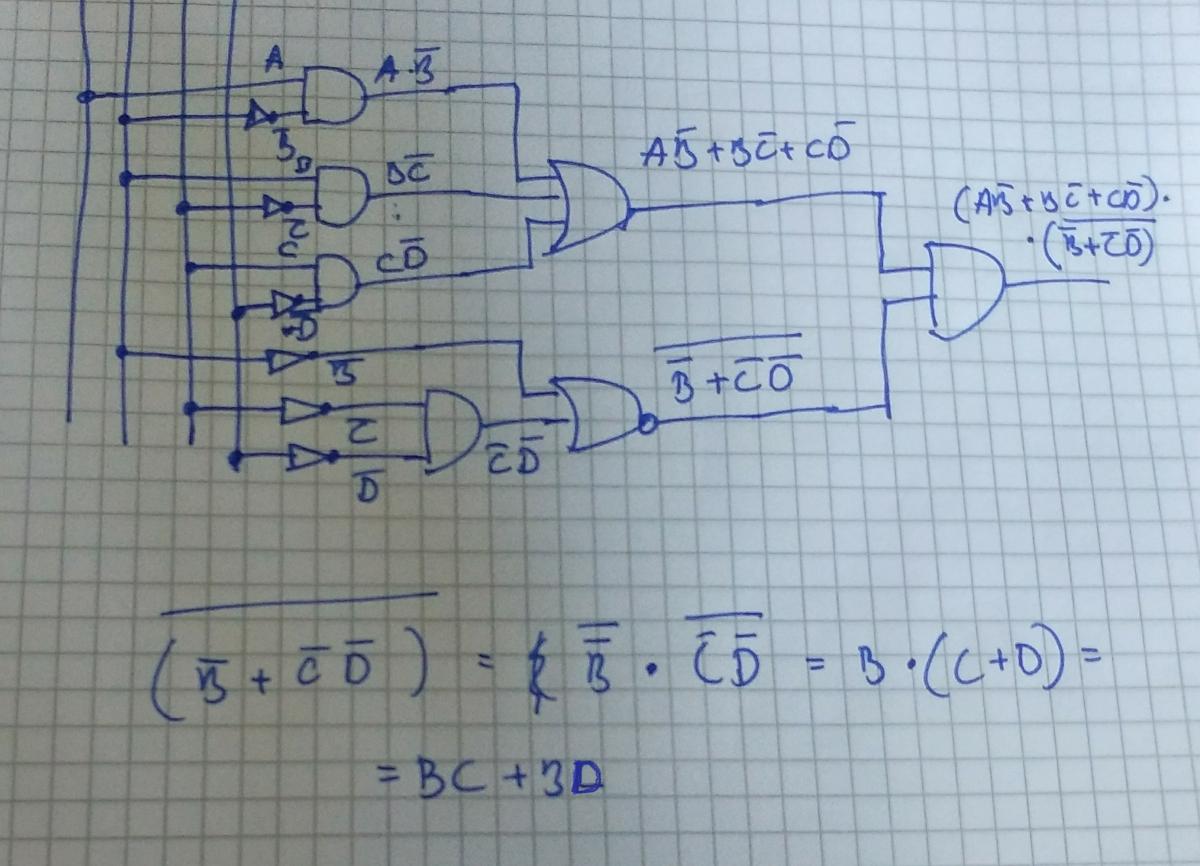 A
A·B̅
B̅
B
BC̅
C̅
C
CD̅
D̅
AB̅+BC̅+CD̅
(AB̅+BC̅+CD̅)·
·\overline{(B̅+C̅D̅)}
B̅
C̅
D̅
C̅D̅
\overline{B̅+C̅D̅}
\overline{(B̅+C̅D̅)} = \overline{B̅} · \overline{C̅D̅} = B·(C+D)=
= BC + BD